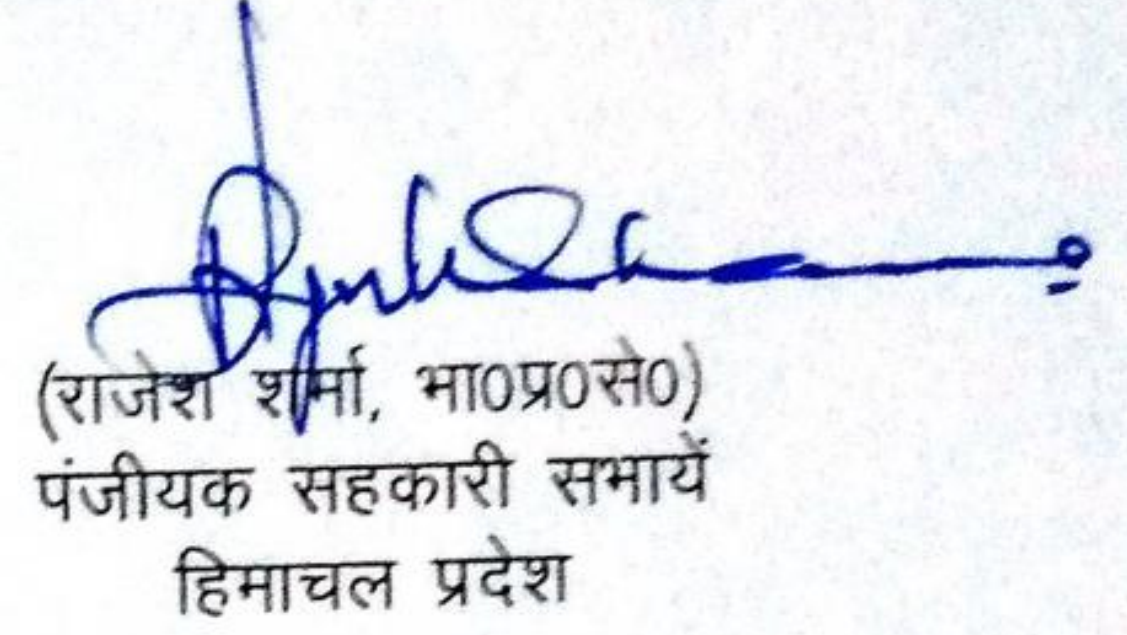 (राजेश शर्मा, भा0प्र0से0)
पंजीयक सहकारी सभायें
हिमाचल प्रदेश